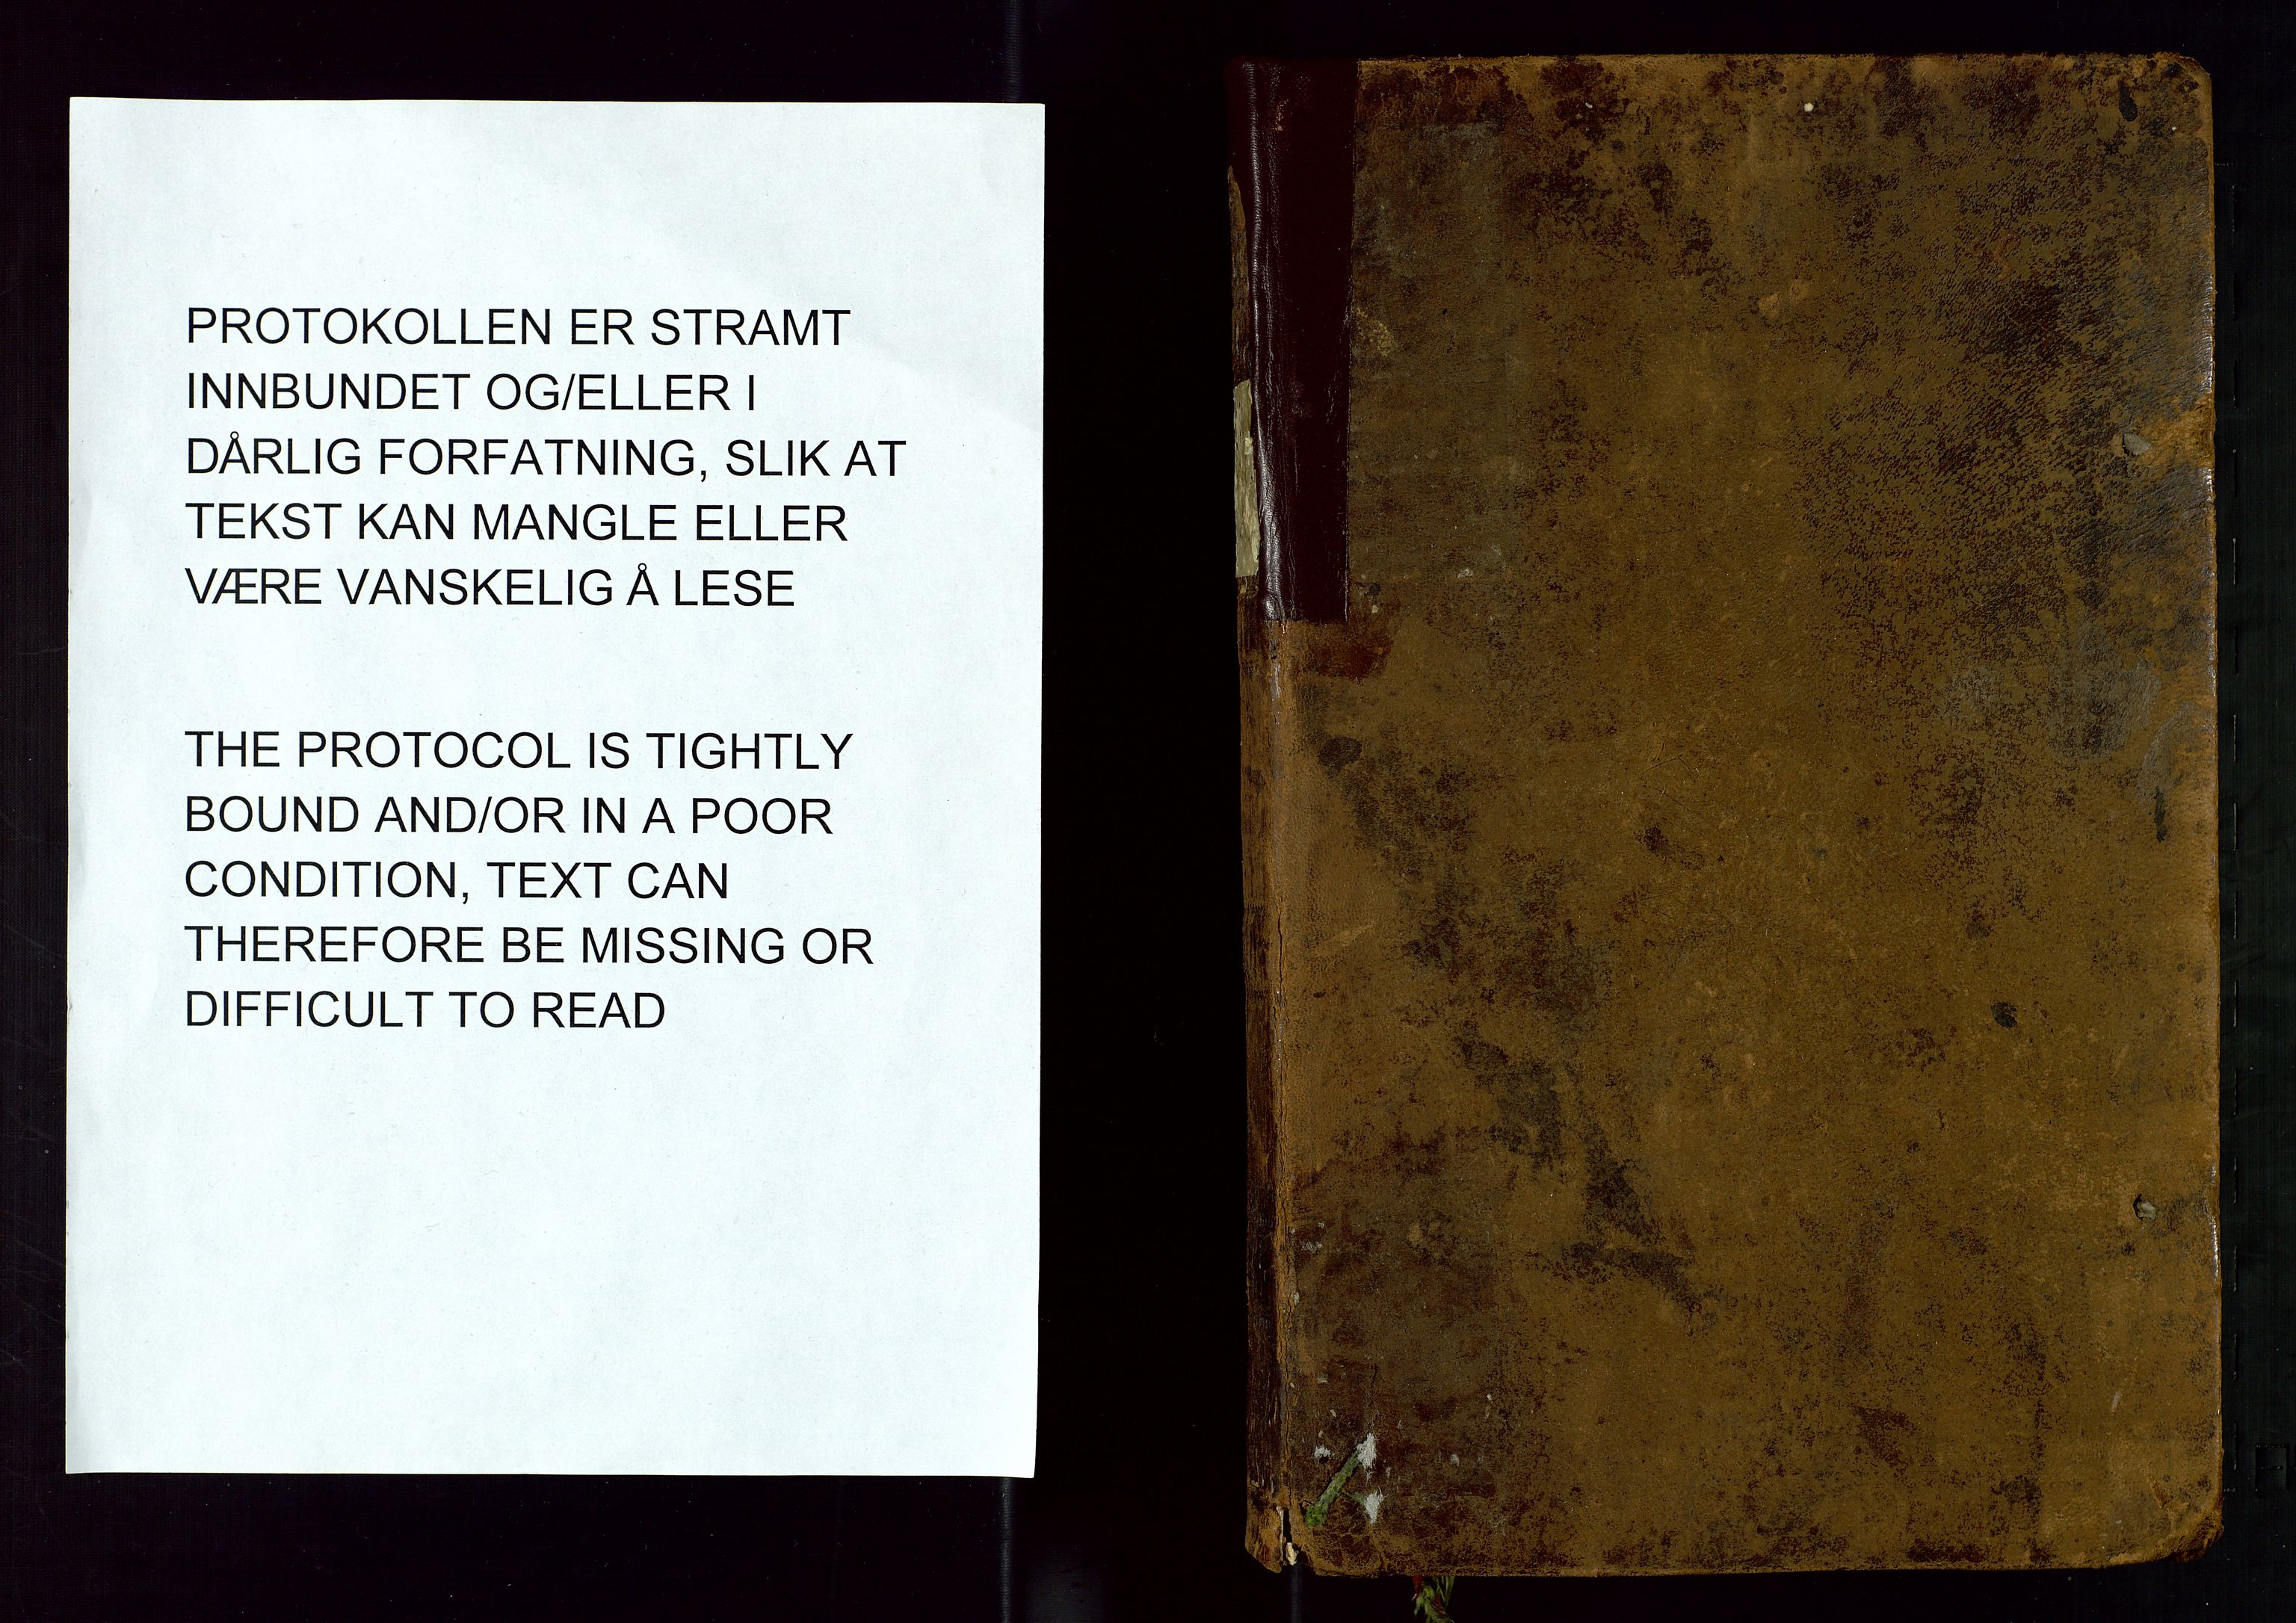 PROTOKOLLEN ER STRAMT
INNBUNDET OG/ELLER I
DÅRLIG FORFATNING, SLIK AT
TEKST KAN MANGLE ELLER
VÆRE VANSKELIG Å LESE
THE PROTOCOL IS TIGHTLY
BOUND AND/OR IN A POOR
CONDITION, TEXT CAN
THEREFORE BE MISSING OR
DIFFICULT TO READ